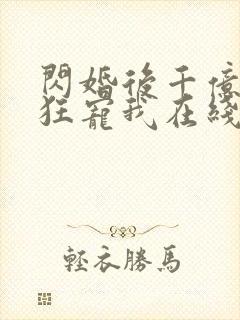 閃婚後千億
狂寵我在綫
輕衣勝馬